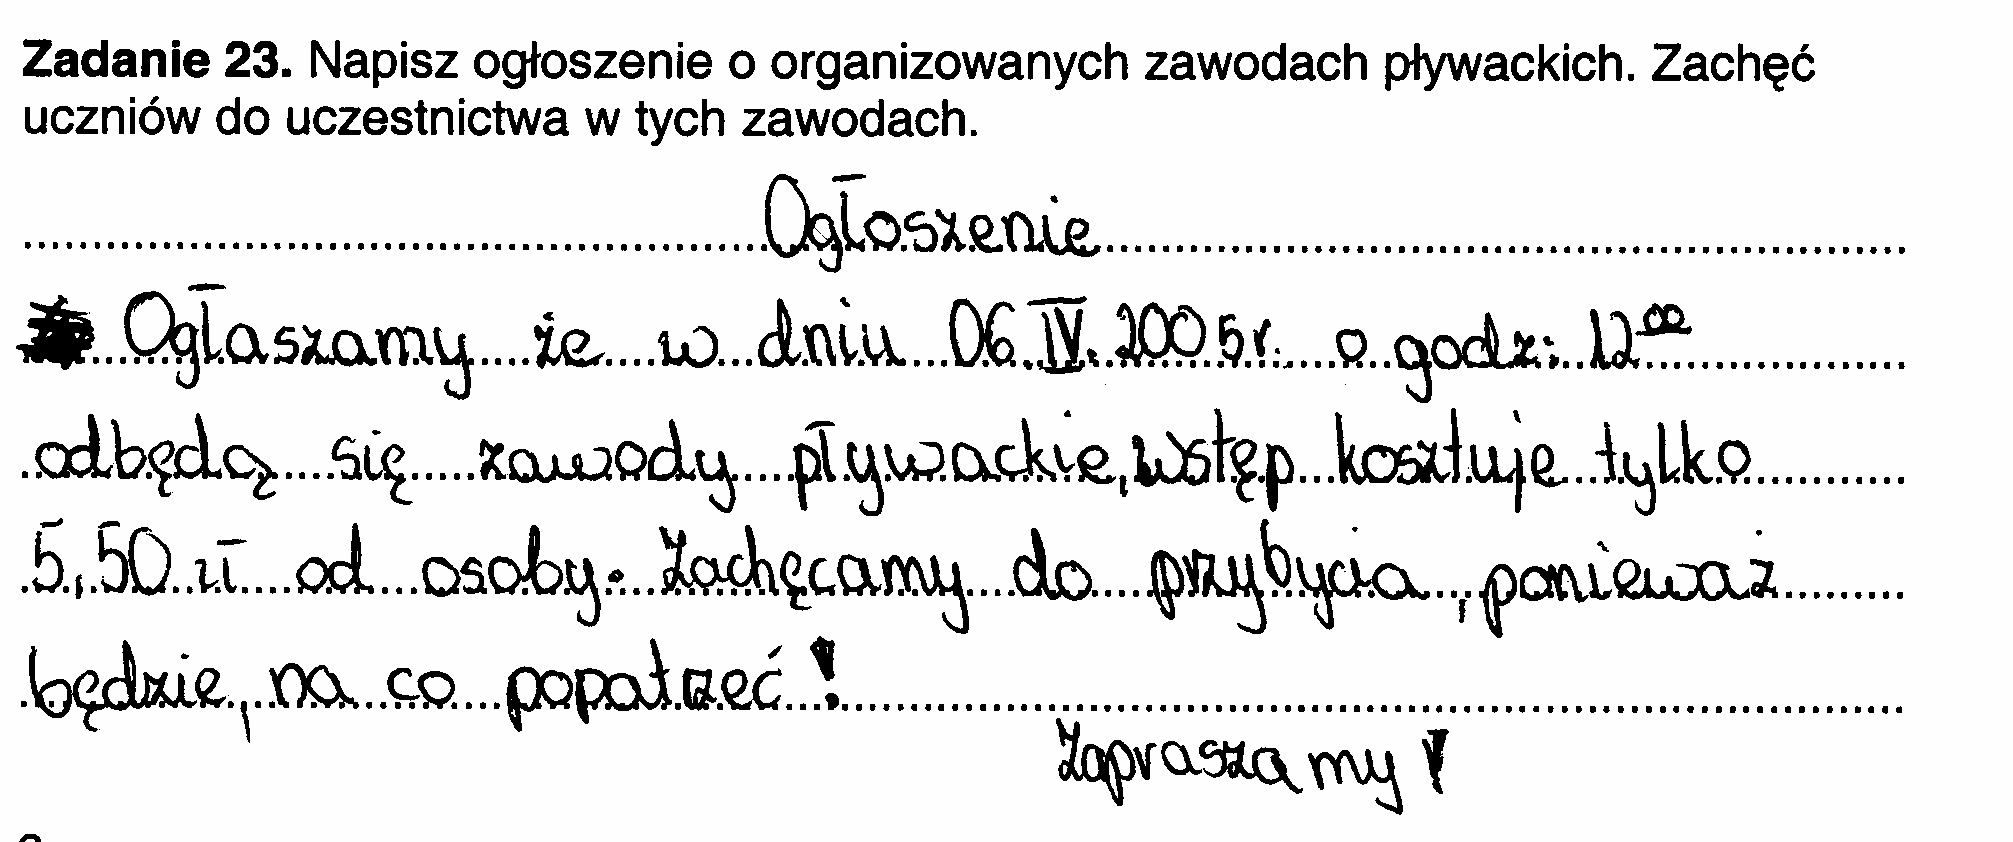 Zadanie 23. Napisz ogłoszenie o organizowanych zawodach pływackich. Zachęć
uczniów do uczestnictwa w tych zawodach.
Ogłoszenie
Ogłaszamy że w dniu 06.IV.2005r. o godz: 12⁰⁰
odbędą się zawody pływackie, wstęp kosztuje tylko
5,50 zł od osoby. Zachęcamy do przybycia, ponieważ
będzie, na co popatrzeć!
Zapraszamy!